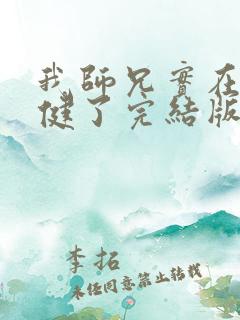 我師兄實在
健了完結版
李拓
未經同意禁止轉載